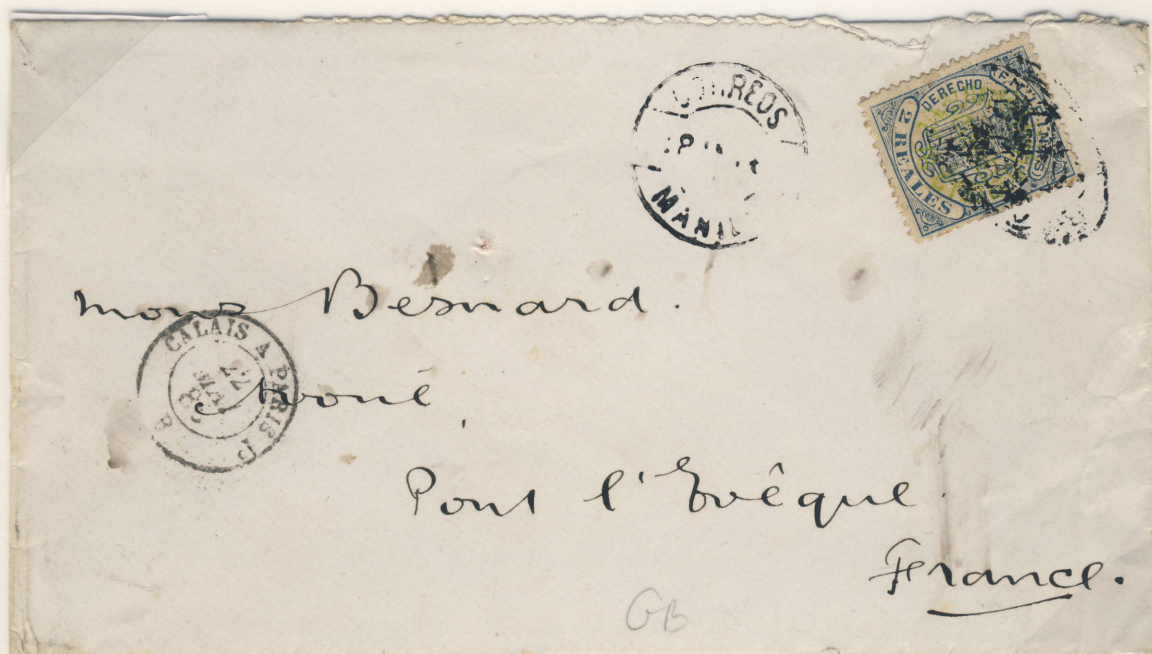 CORREOS
MANIL
DERECHO
2 REALES
mons Besnard.
CALAIS A PARIS
22
Avoué,
Pont l'Evêque.
France.
GB